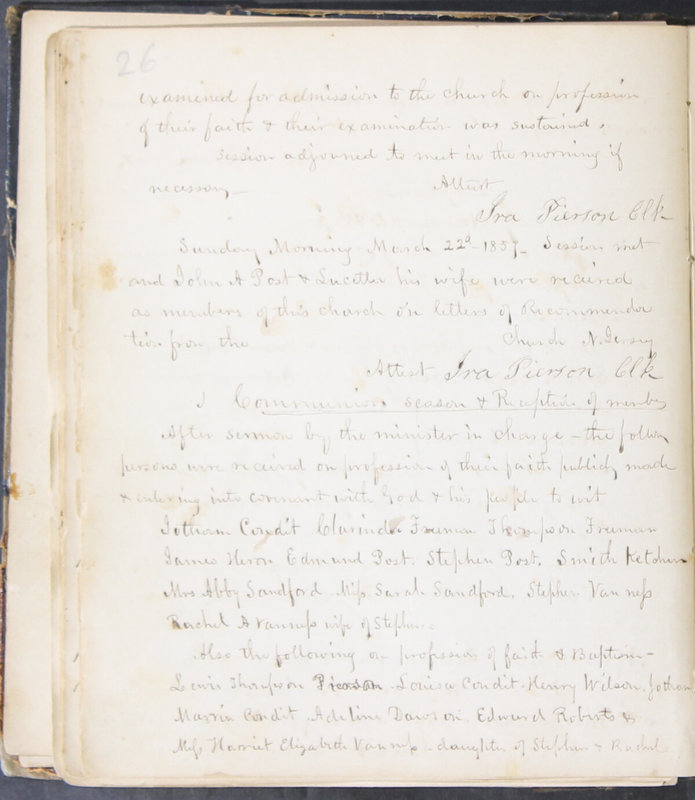 26
examined for admission to the church on profession
of their faith & their examination was sustained.
session adjouned to meet in the morning if
necessary— Attest
Ira Pierson Clk
Sunday Morning March 22d - 1857 - Session met
and John A Post & Lucetta his wife were recieved
as members of this church on letters of Recommenda
tion from the Church N. Jersey
Attest Ira Pierson Clk
Communion season & Reception of members
After sermon by the minister in charge - the follow
persons were received on profession of their faith publicly made
& entering into covenant with God & his people to wit
Jotham Condit Clarinda Freeman Thompson Freeman
James Heron Edmund Post. Stephen Post. Smith Ketchum
Mrs Abby Sandford. Miss Sarah Sandford. Stephen Van ness
Rachel A Vanness wife of Stephen.
Also the following on profession of faith & Baptism—
Lewis Thompson Pierson. Louisa Condit. Henry Wilson. Jotham
Condit Adeline Dawson. Edward Roberts &
Miss Harriet Elizabeth Vanness - daughter of Stephen & Rachel